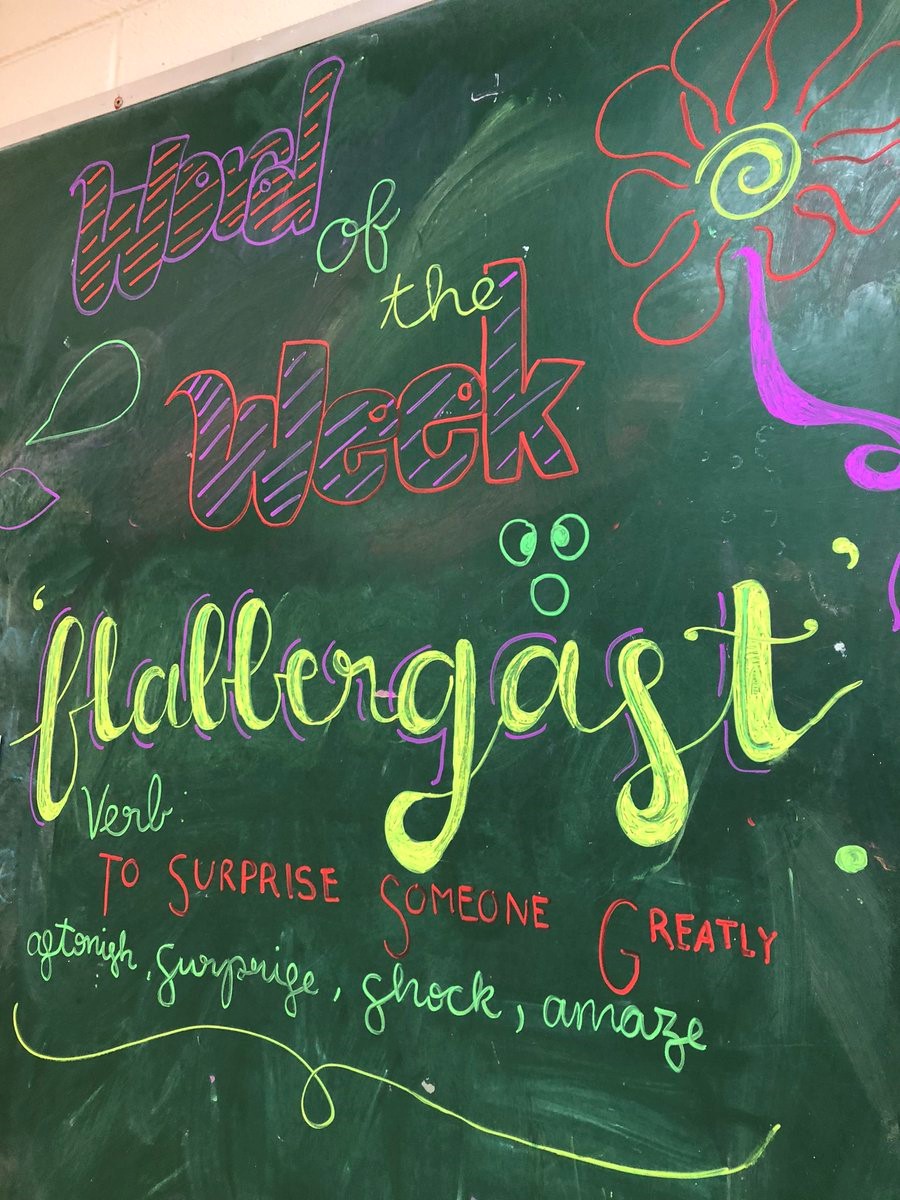 Word
of
the
Week
'flabbergast'
Verb:
TO SURPRISE SOMEONE GREATLY
astonish, surprise, shock, amaze